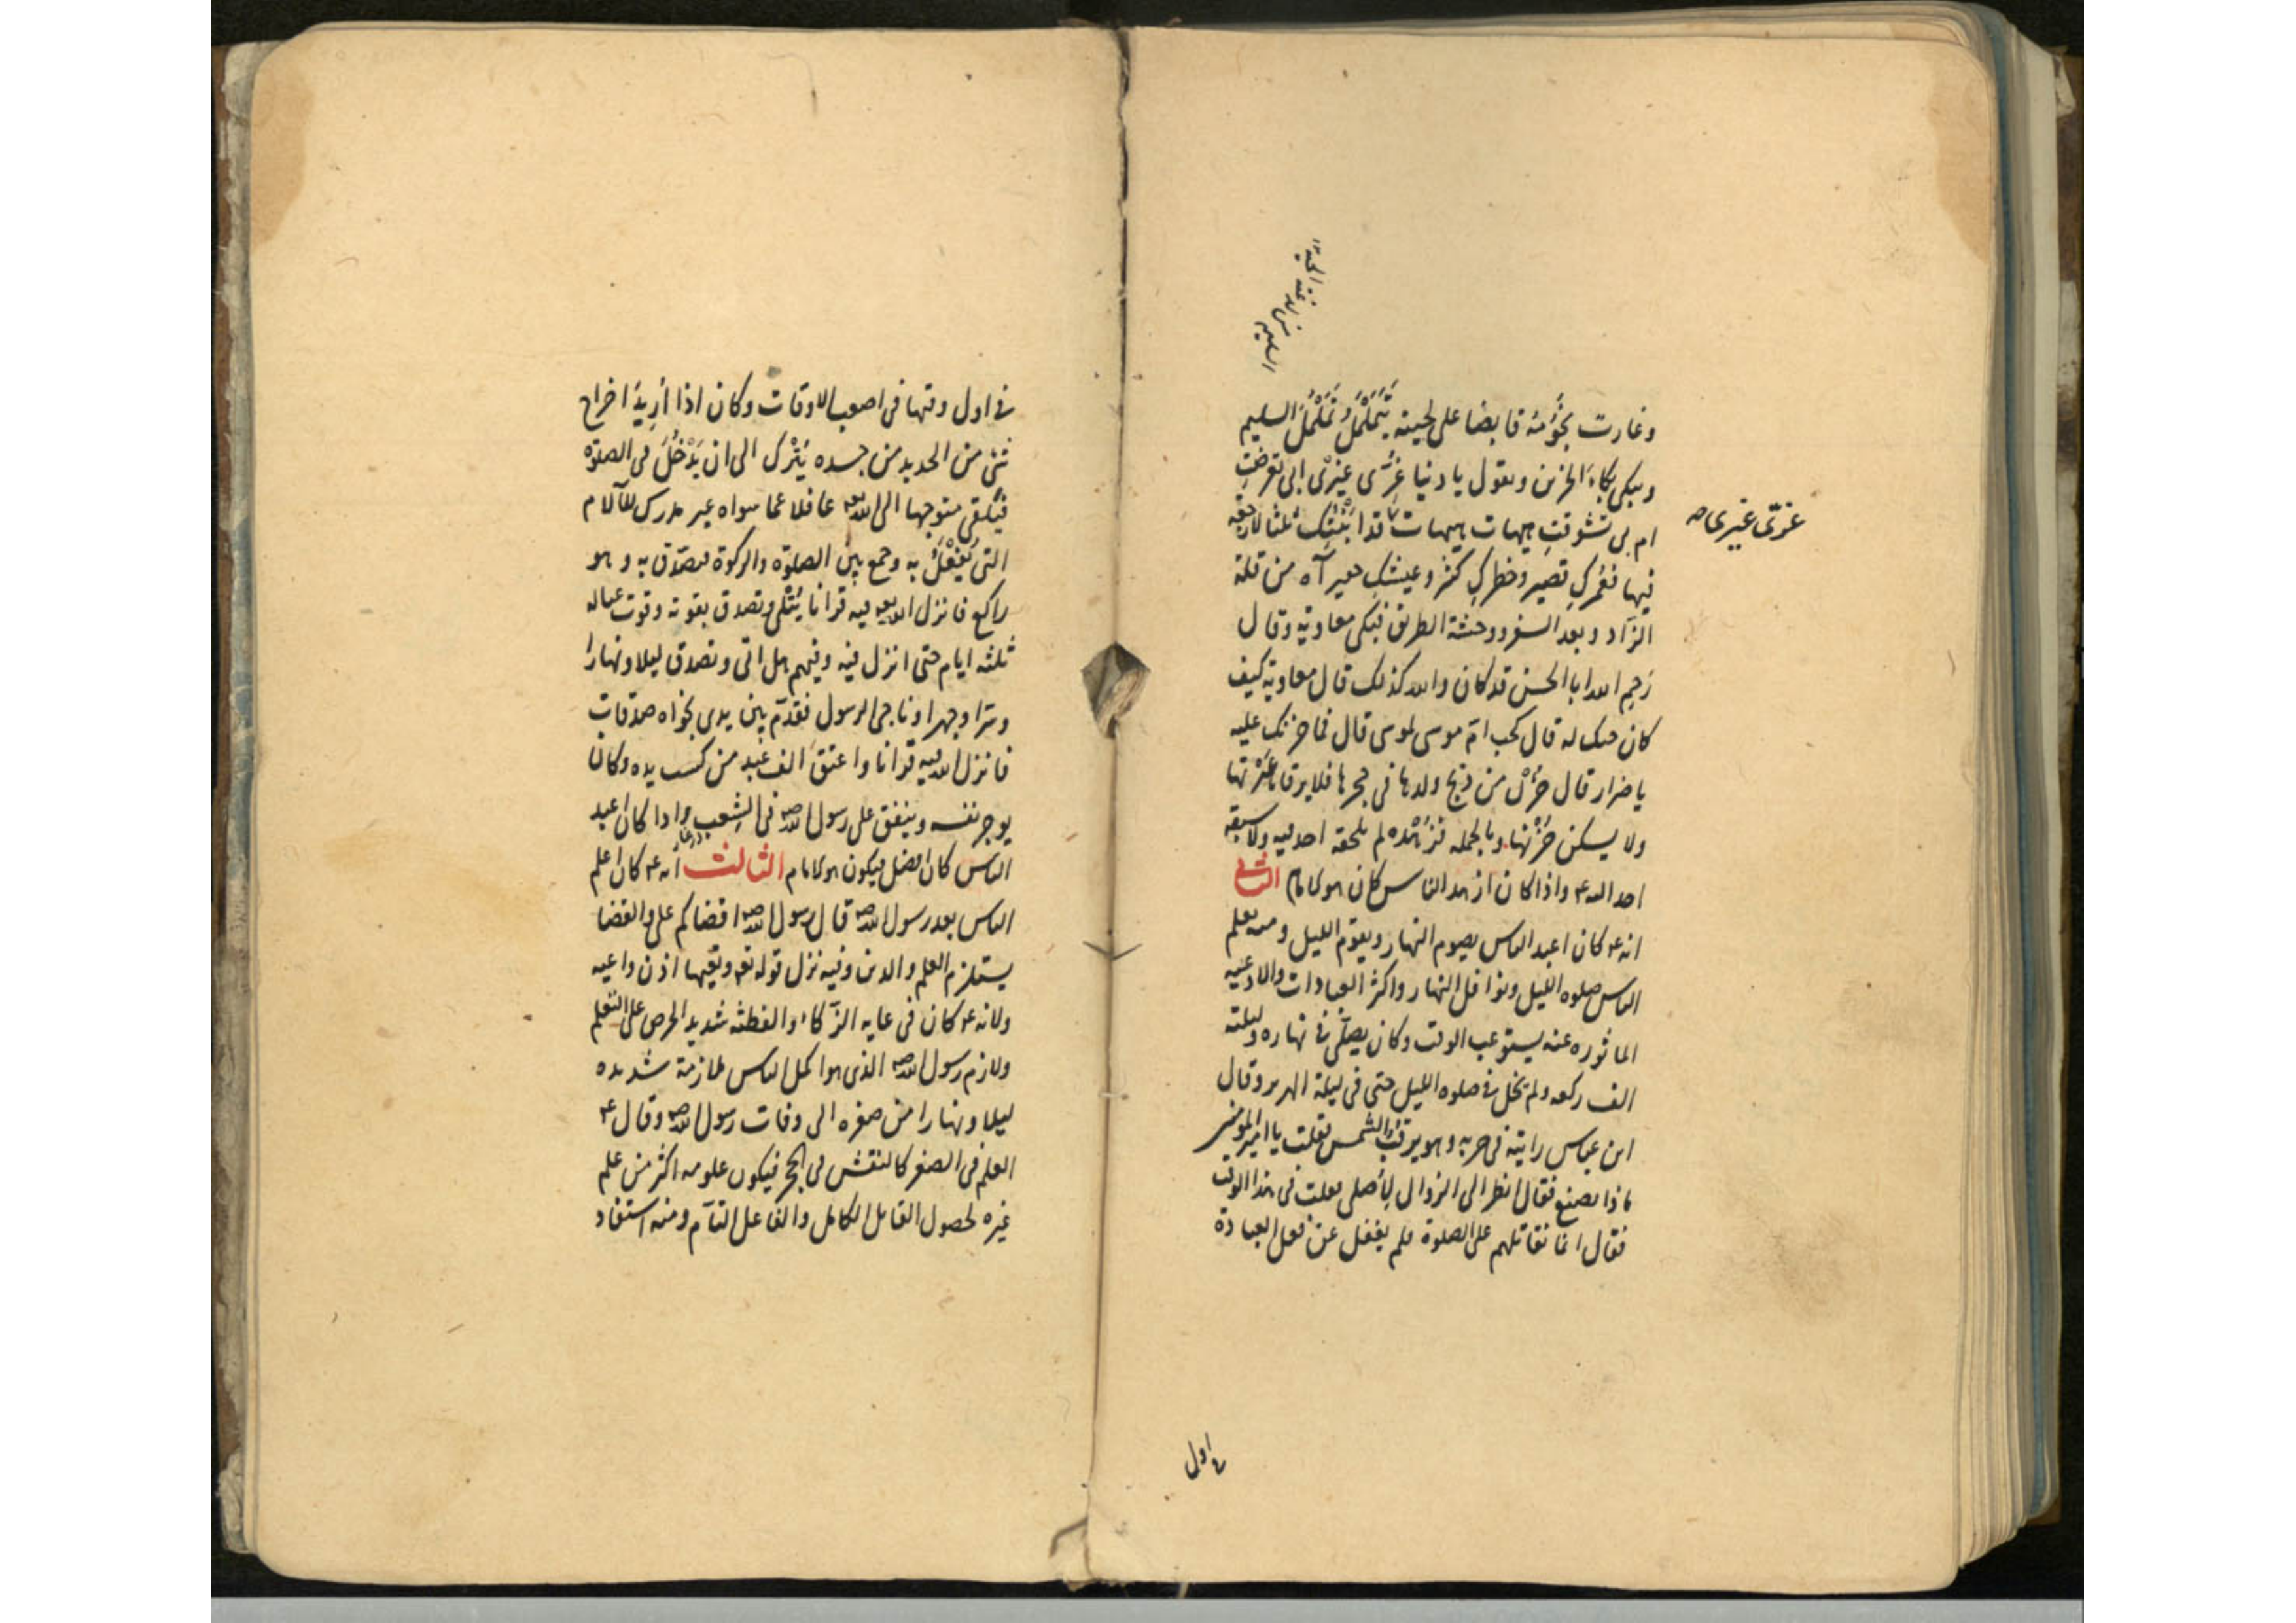 وغارت نجومه قابضا على لحيته يَتَمَلْمَلُ تَمَلْمُلَ السليم
ويبكى بكاءَ الحزين ويقول يا دنيا غُرّى غيرى ابى تعرضتِ
ام بى تشوقتِ هيهات هيهات قد ابَنْتُكِ ثلثا لا رجعة
فيها فعُمركِ قصير وخطركِ كثير وعيشكِ حقير آه من قلة
الزّاد وبعد السفر ووحشة الطريق فبكى معاوية وقال
رَحِم الله ابا الحسن قد كان والله كذلك قال معاوية كيف
كان حبك له قال كحب امّ موسى لموسى قال فما حزنك عليه
يا ضرار قال حُزْن من ذبح ولدها فى حجرها فلا يرقا عَبْرتها
ولا يسكن حُزْنها وبالجمله فزُهْده لم يلحقه احد فيه ولا سبقه
احد اليه ع واذا كان ازهد الناس كان هو الامام الثانى
انه ع كان اعبد الناس يصوم النهار ويقوم الليل ومنه تعلم
الناس صلوه الليل ونوافل النهار واكثر العبادات والادعيه
الماثوره عنه يستوعب الوقت وكان يصلّى فى نهاره وليلته
الف ركعه ولم يخل فى صلوه الليل حتى فى ليلة الهرير وقال
ابن عباس رايته فى حربه وهو يرقب الشمس فقلت يا امير المومنين
ماذا تصنع فقال انظر الى الزوال لأصلى فقلت فى هذا الوقت
فقال انما نقاتلهم على الصلوة فلم يغفل عن فعل العبادة
غرّى غيرى
فى اول
فى اول وقتها فى اصعب الاوقات وكان اذا أُرِيدَ اخراج
شئ من الحديد من جسده يُتْرك الى ان يَدْخُلَ فى الصلوة
فيَبْقى متوجها الى الله تعالى غافلا عما سواه غير مدرك للآلام
التى يُفْعَلُ به وجمع بين الصلوة والزكوة فتصدّق به وهو
راكع فانزل الله تعالى فيه قرانا يُتْلى وتصدق بقوته وقوت عياله
ثلثه ايام حتى انزل فيه وفيهم هل اتى وتصدق ليلا ونهارا
وسرا وجهرا وناجى الرسول فقدّم بين يدى نجواه صدقات
فانزل الله فيه قرانا واعتقَ الف عَبد من كسب يده وكان
يوجر نفسه وينفق على رسول الله ص فى الشِعب واذا كان اعبد
الناس كان افضل فيكون هو الامام الثالث انه ع كان اعلم
الناس بعد رسول الله ص قال رسول الله ص اقضاكم على والقضا
يستلزم العلم والدين وفيه نزل قوله تعالى وتعيها اذن واعيه
ولانه ع كان فى غايه الذّكاء والفطنه شديد الحرص على التعلم
ولازم رسول الله ص الذى هو اكمل الناس ملازمة شديده
ليلا ونهارا من صغره الى وفات رسول الله ص وقال ع
العلم فى الصغر كالنقش فى الحجر فيكون علومه اكثر من علم
غيره لحصول القابل الكامل والفاعل التآم ومنه استفاد